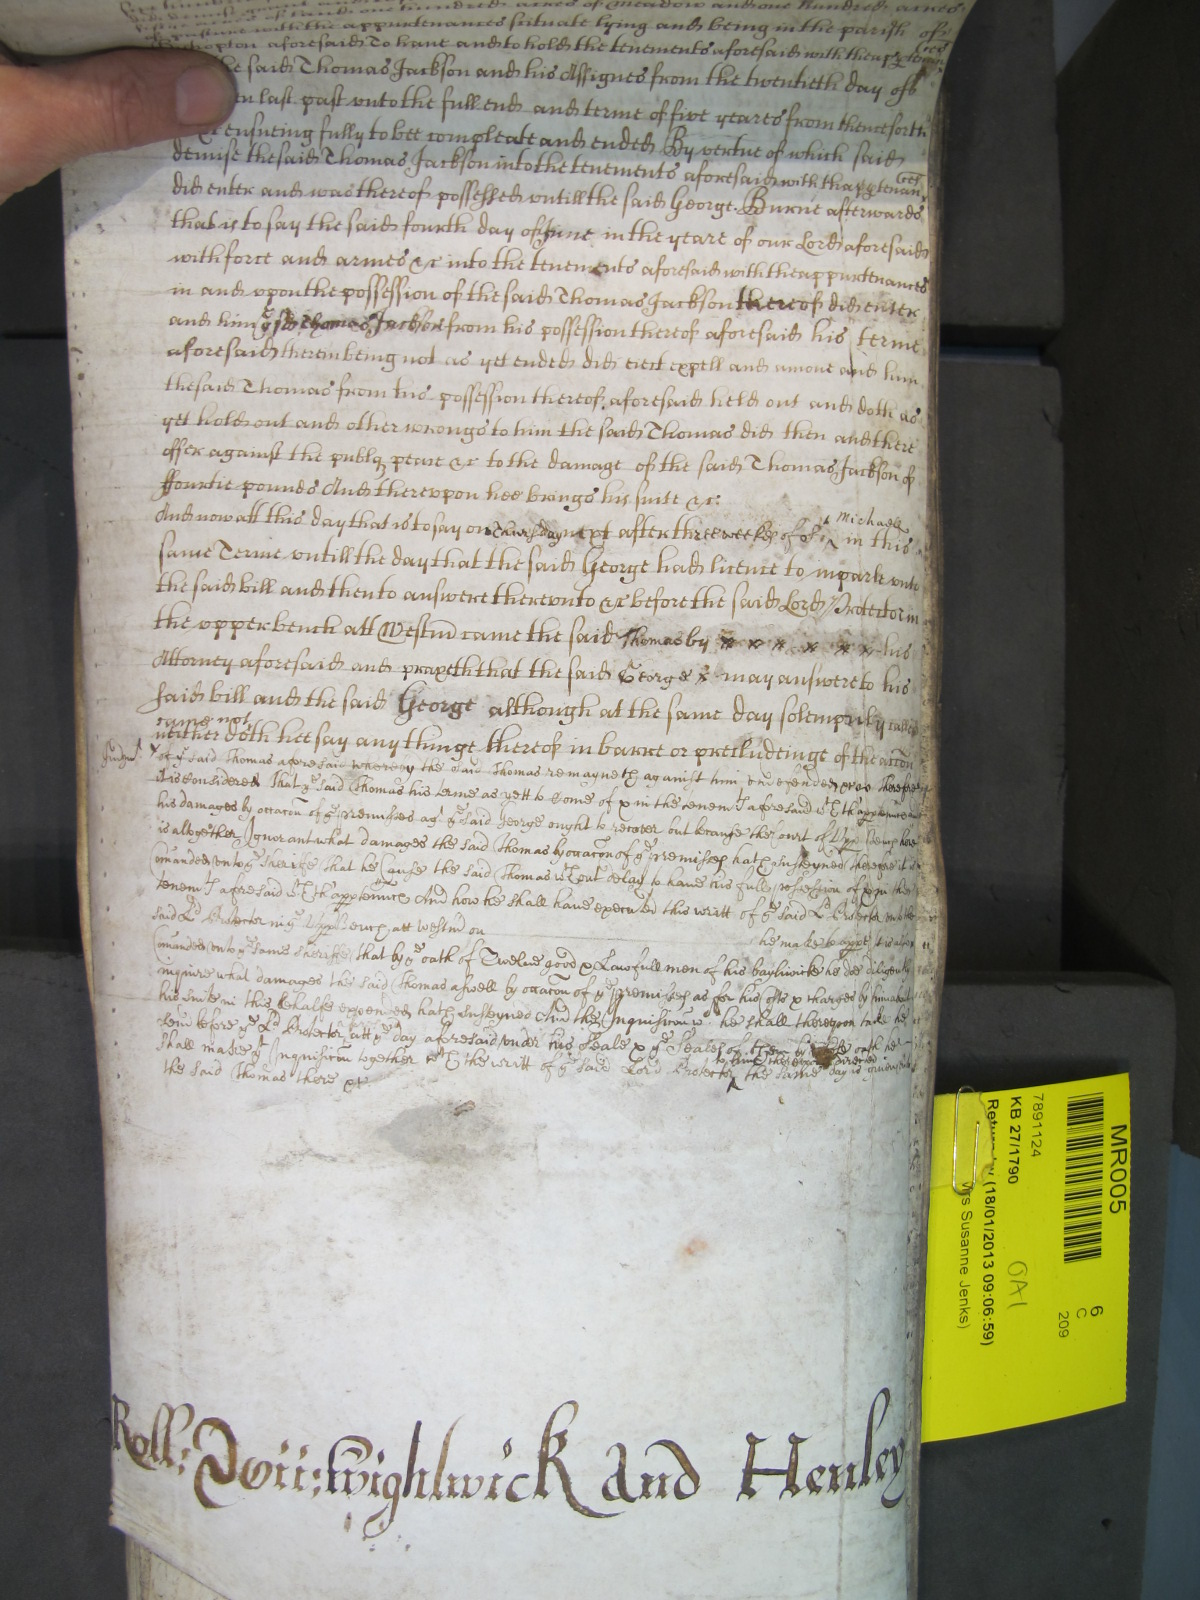 acres of meadow and one hundred acres
of pasture with the appurtenances situate lying and being in the parish of
aforesaid To have and to hold the tenements aforesaid with thapptenances
the said Thomas Jackson and his Assignes from the twentieth day of
last past vnto the full end and terme of five yeares from thenceforth
ensueing fully to bee compleate and ended By vertue of which said
demise the said Thomas Jackson into the tenements aforesaid with thapptenances
did enter and was thereof possessed vntill the said George Burne afterwards
that is to say the said fourth day of June in the yeare of our Lord aforesaid
with force and armes &c into the tenements aforesaid with the appurtenances
in and vpon the possession of the said Thomas Jackson thereof did enter
and him ye sd Thomas Jackson from his possession thereof aforesaid his terme
aforesaid therein being not as yet ended did eiect expell and amove and him
the said Thomas from his possession thereof aforesaid held out and doth as
yet hold out and other wrongs to him the said Thomas did then and there
offer against the publq peace &c to the damage of the said Thomas Jackson of
ffourtie pounds And therevpon hee brings his suite &c:
And now att this day that is to say on next after three weekes of St Michael in this
same Terme vntill the day that the said George had licence to imparle vnto
the said bill and then to answere therevnto &c before the said Lord Protector in
the vpper bench att Westm came the said Thomas by his
Attorney aforesaid and prayeth that the said George may answere to his
said bill and the said George although at the same day solempnly called
came not
neither doth hee say any thinge thereof in barre or precludeinge of the accon
Judgmt
of ye said Thomas aforesaid whereby the said Thomas remayneth against him vndefended &c Therefore
it is considered That ye said Thomas his terme as yett to come of & in the tenemts aforesaid wth thapptenncs and
his damages by occacon of ye premisses agt ye said George ought to recover but because the Court of Vpper Bench here
is altogether Ignorant what damages the said Thomas by occacon of ye premisses hath susteyned Therefore it is
Comanded vnto ye Sheriffe That he Cause the said Thomas wthout delay to have his full possession of & in the
tenemts aforesaid wth thapptenncs And how he shall have executed this writt of ye said Ld Protector
said Ld Protector in ye Vpper Bench att Westm on he make to appe it is also
Comanded vnto ye same Sheriffe that by ye oath of Twelve good & Lawfull men of his bayliwicke he doe diligently
inquire what damages the said Thomas aswell by occacon of ye premisses as for his Costs & charges by him about
his suite in this behalfe expended hath susteyned And the Inquisicon wch he shall thereupon take he
before ye Ld Protector att ye day aforesaid vnder his Seale & ye Seales of them by whose oath he
shall make yt Inquisicon together wth the writt of ye said Lord Protector to him thereupon directed the same day is given
the said Thomas there &c
Roll: Wightwick and Henley
MR005
6
C
209
7891124
KB 27/1790
(18/01/2013 09:06:59)
Susanne Jenks)